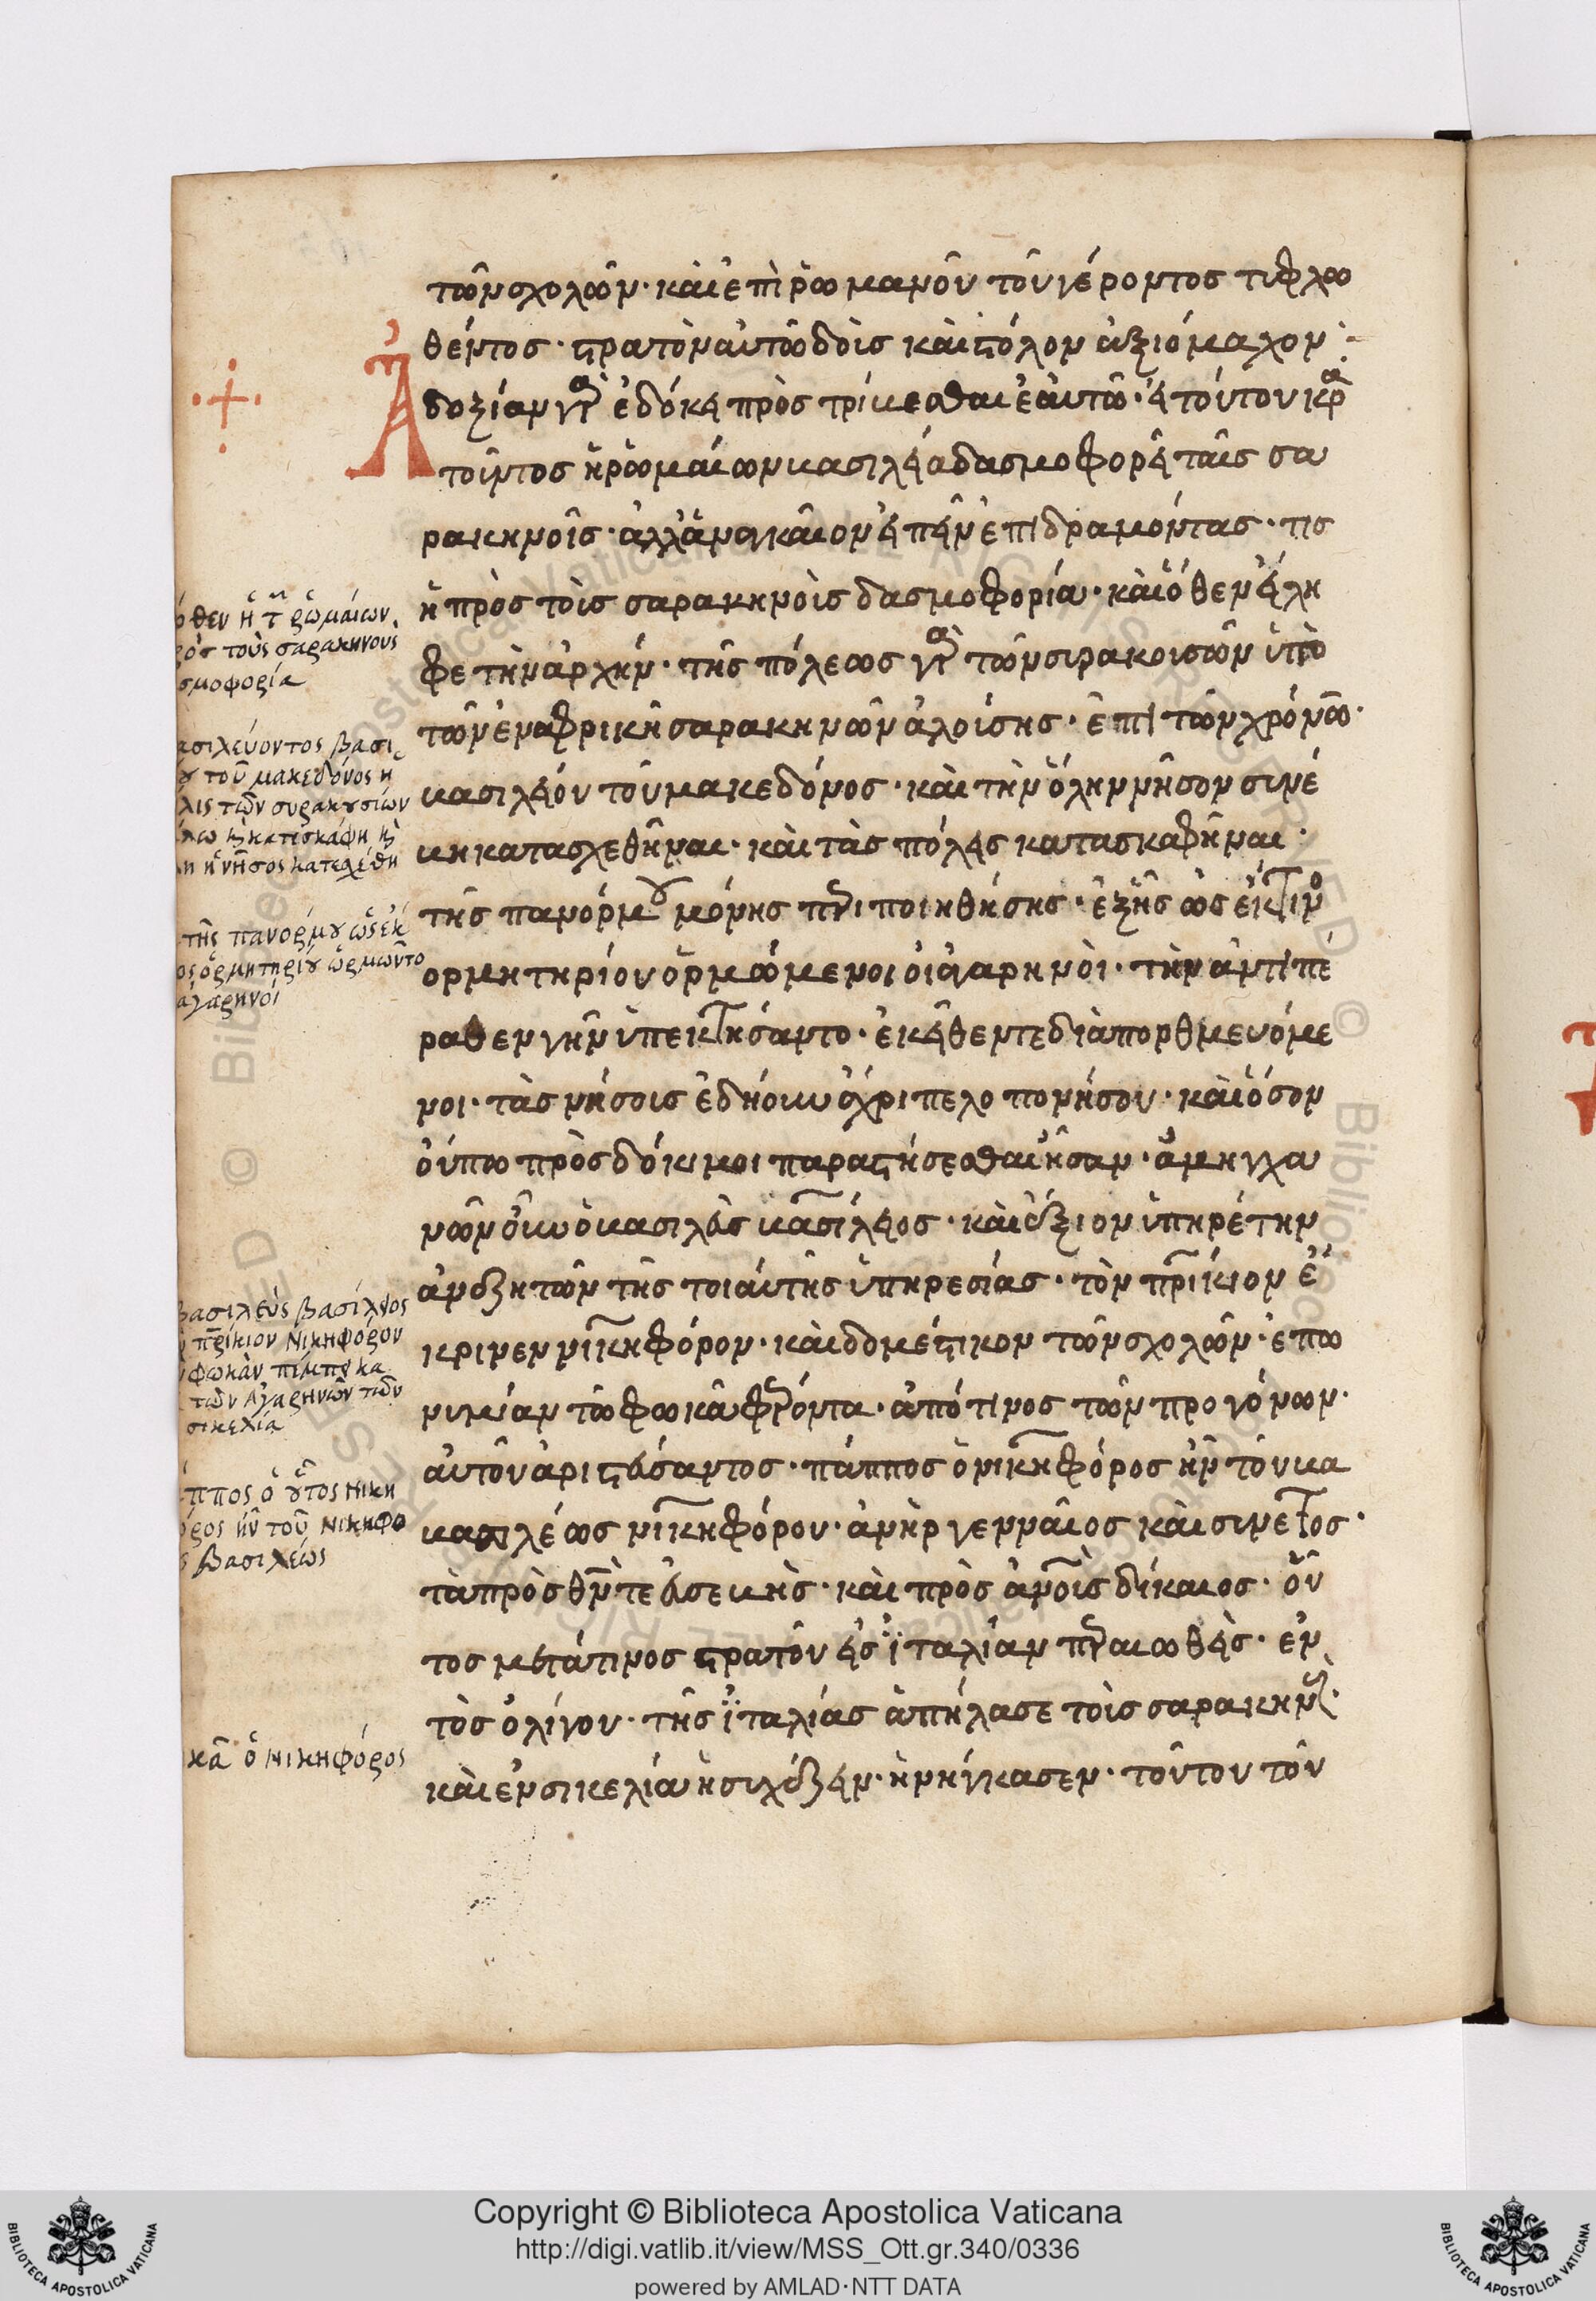 τῶν σχολῶν· καὶ ἐπὶ ῥωμανοῦ τοῦ γέροντος τυφλω
θέντος· στρατὸν αὐτῶ δοὺς καὶ στόλον ἀξιόμαχον·
Ἀδοξίαν γὰρ ἐδόκει προστρίβεσθαι ἑαυτῶ· εἰ τούτου κρα
τοῦντος ἡ ῥωμαίων βασιλεία δασμοφορεῖ τοῖς σα
ρακηνοῖς· ἀλλ' ἀναγκαῖον εἰπεῖν ἐπιδραμόντας· τίς
ἡ πρὸς τοὺς σαρακηνοὺς δασμοφορία· καὶ ὅθεν εἴλη
φε τὴν ἀρχήν· τῆς πόλεως γὰρ τῶν συρακουσῶν ὑπὸ
τῶν ἐν ἀφρικῆ σαρακηνῶν ἁλούσης· ἐπὶ τῶν χρόνων·
βασιλείου τοῦ μακεδόνος· καὶ τὴν ὅλην νῆσον συνέ
βη κατασχεθῆναι· καὶ τὰς πόλεις κατασκαφῆναι·
τῆς πανόρμου μόνης περιποιηθείσης· ἐξ ἧς ὡς ἔκ τινο
ορμητηρίου ὁρμώμενοι οἱ ἀγαρηνοὶ· τὴν ἀντιπέ
ραθεν γῆν ὑπεκτήσαντο· ἐκεῖθεν τε διαπορθμευόμε
νοι· τὰς νήσους ἐδήουν ἄχρι πελοπονήσου· καὶ ὅσον
οὔπω πρὸσδόκιμοι παραστήσεσθαι ἦσαν· ἀμηχα
νῶν οὖν ὁ βασιλεὺς βασίλειος· καὶ ἄξιον ὑπηρέτην
ἀναζητῶν τῆς τοιαύτης ὑπηρεσίας· τὸν πρίκιον ἔ
κρινεν νικηφόρον· καὶ δομέστικον τῶν σχολῶν· ἐπω
νυμίαν τῶ φωκᾶ φέροντα· ἀπό τινος τῶν προγόνων·
αὐτοῦ ἀριστεύσαντος· πάππος ὁ νικηφόρος ἦν τοῦ βα
βασιλέως νικηφόρου· ἀνὴρ γενναῖος καὶ συνετος·
τὰ πρὸς θν τε εὐσεβὴς· καὶ πρὸς ἀνους δίκαιος· οὗ
τος μετά τινος στρατοῦ εἰς ἰταλίαν περαιωθεὶς· ἐν
τὸς ὀλίγου· τῆς ἰταλίας ἀπήλασε τοὺς σαρακην·
καὶ ἐν σικελία ἡσυχάζειν· ἠνάγκασεν· τούτου τοῦ
ὅθεν ἡ τ ῥωμαίων
τοὺς σαρακηνους
σμοφορία
ασιλεύοντος βασι
του μακεδόνος η
λις τῶν συρακουσίων
κατεσκάφη κ
η ἡ νῆσος κατεσχέθη
τῆς πανόρμου ὡς ἐκ
ος ὁρμητηρίου ὡρμῶντο
ἀγαρηνοί
βασιλεὺς βασίλειος
πρίκιον Νικηφόρον
φωκὰν πέμπει κα
τῶν Ἀγαρηνῶν τῶν
σικελία
ππος ὁ οὗτος Νικη
ρος ἦν τοῦ Νικηφο
βασιλέως
κᾶ ὁ Νικηφόρος
Copyright © Biblioteca Apostolica Vaticana
http://digi.vatlib.it/view/MSS_Ott.gr.340/0336
powered by AMLAD·NTT DATA